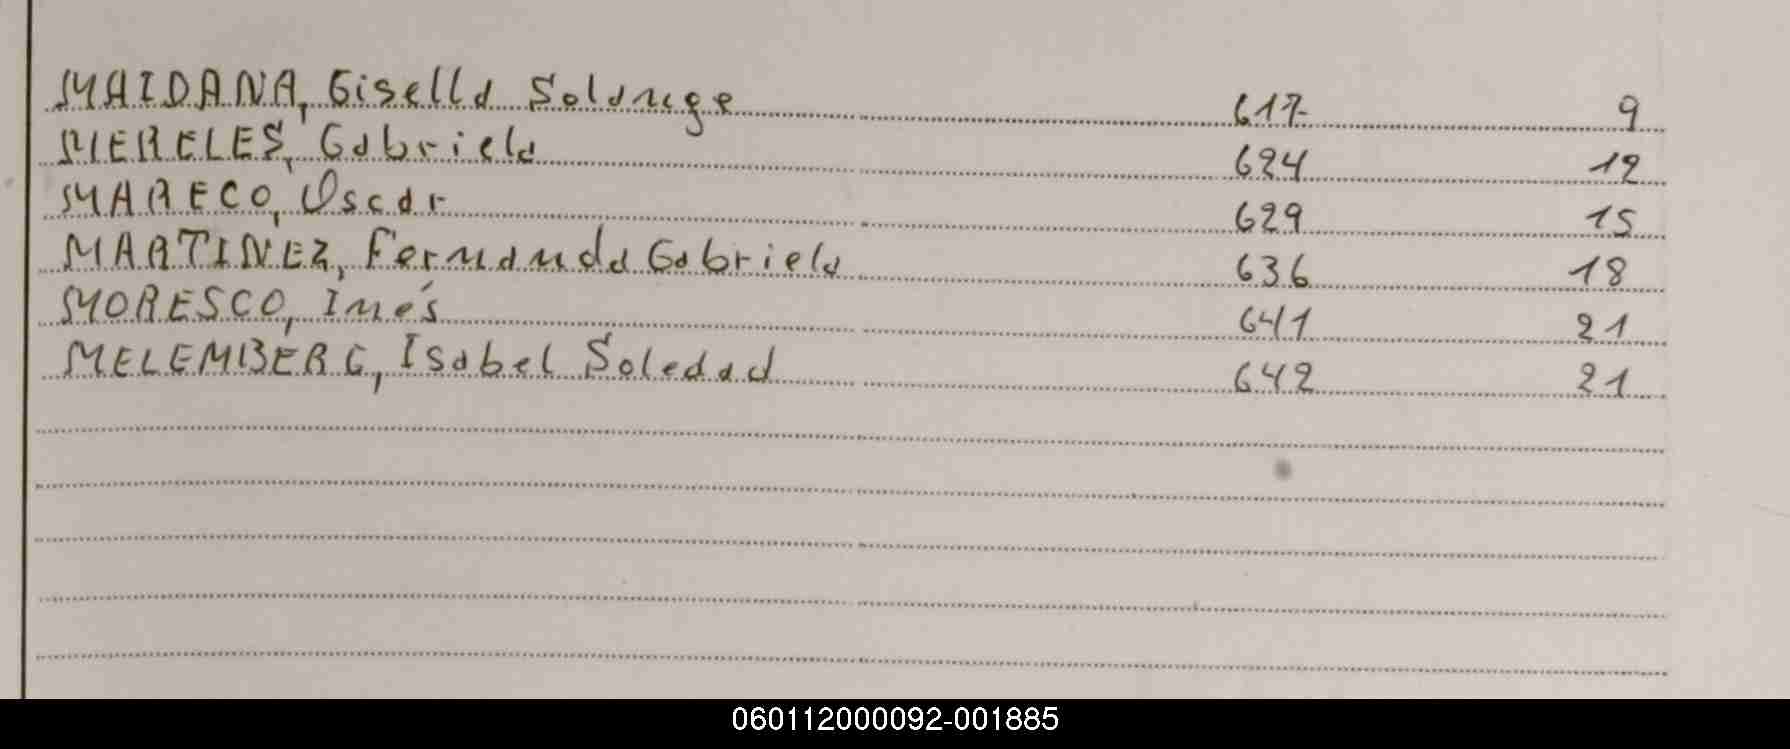 MAIDANA, Gisella Solange 617 9
MERELES, Gabriela 624 12
MARECO, Oscar 629 15
MARTINEZ, Fernanda Gabriela 636 18
MORESCO, Inés 641 21
MELEMBERG, Isabel Soledad 642 21
060112000092-001885